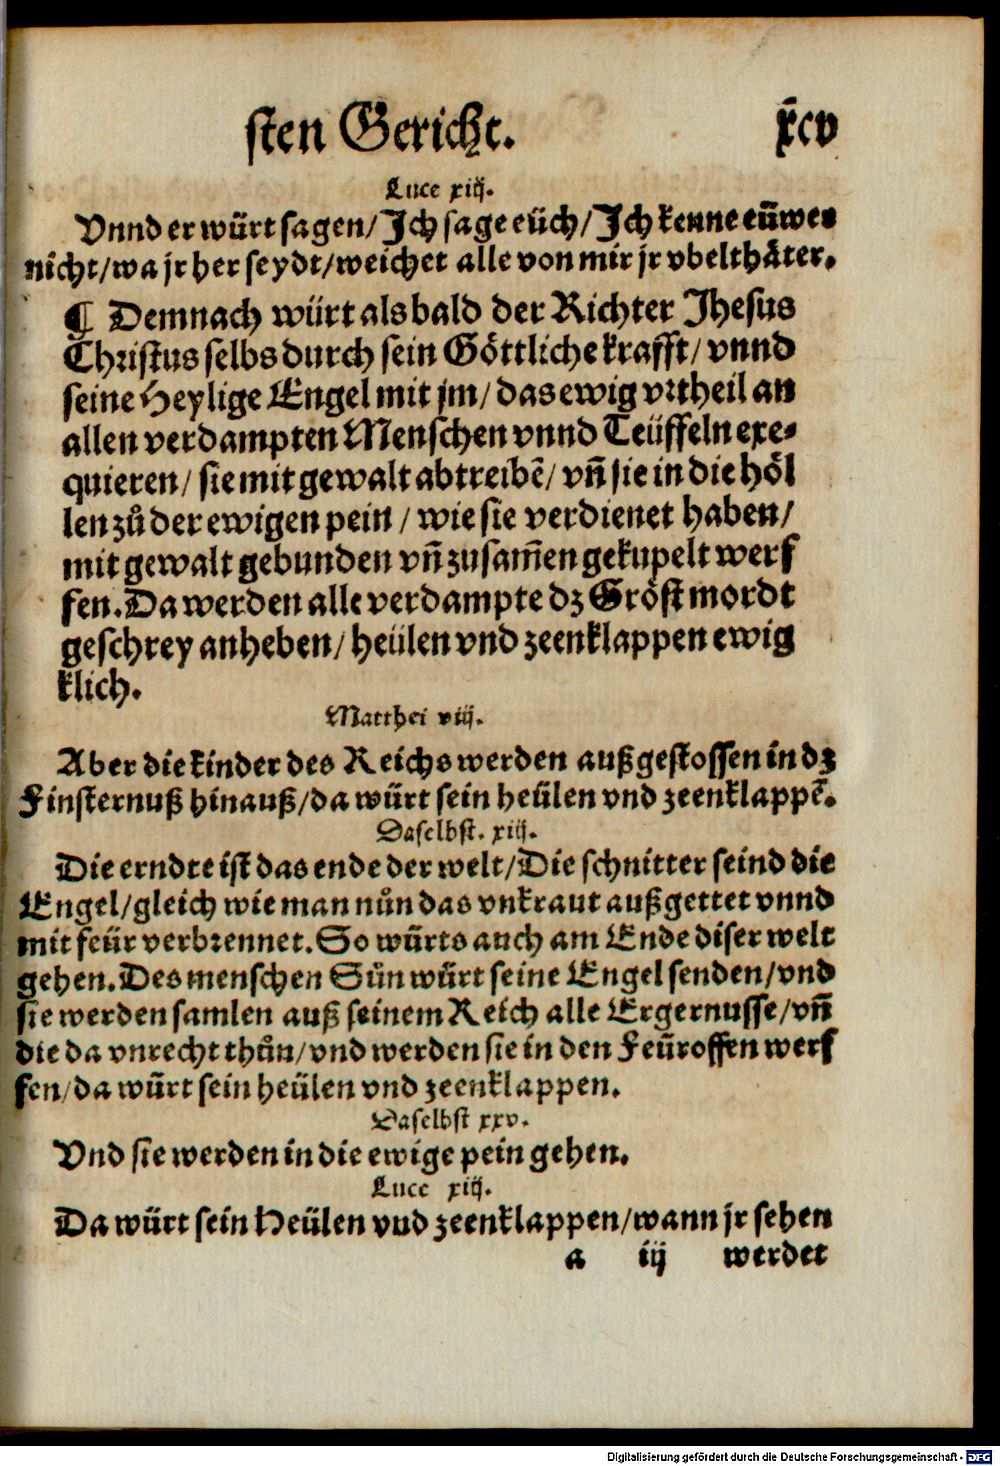 sten Gericht. xcv
Luce xiij.
Vnnd er würt sagen/ Ich sage eüch/ Ich kenne eüwer
nicht/ wa jr her seydt/ weichet alle von mir jr vbelthäter.
¶ Demnach würt als bald der Richter Jhesus
Christus selbs durch sein Göttliche krafft/ vnnd
seine Heylige Engel mit jm/ das ewig vrtheil an
allen verdampten Menschen vnnd Teüffeln exe⸗
quieren/ sie mit gewalt abtreibē/ vn̄ sie in die höl
len zů der ewigen pein/ wie sie verdienet haben/
mit gewalt gebunden vn̄ zusam̄en gekupelt werf
fen. Da werden alle verdampte dz Gröst mordt
geschrey anheben/ heülen vnd zeenklappen ewig
klich.
Matthei viij.
Aber die kinder des Reichs werden außgestossen in dz
Finsternuß hinauß/ da würt sein heülen vnd zeenklappē.
Daselbst. xiij.
Die erndte ist das ende der welt/ Die schnitter seind die
Engel/ gleich wie man nůn das vnkraut außgettet vnnd
mit feür verbrennet. So würts auch am Ende diser welt
gehen. Des menschen Sůn würt seine Engel senden/ vnd
sie werden samlen auß seinem Reich alle Ergernusse/ vn̄
die da vnrecht thůn/ vnd werden sie in den Feüroffen werf
fen/ da würt sein heülen vnd zeenklappen.
Daselbst xxv.
Vnd sie werden in die ewige pein gehen.
Luce xiij.
Da würt sein Heülen vnd zeenklappen/ wann jr sehen
a iij werdet
Digitalisierung gefördert durch die Deutsche Forschungsgemeinschaft - DFG